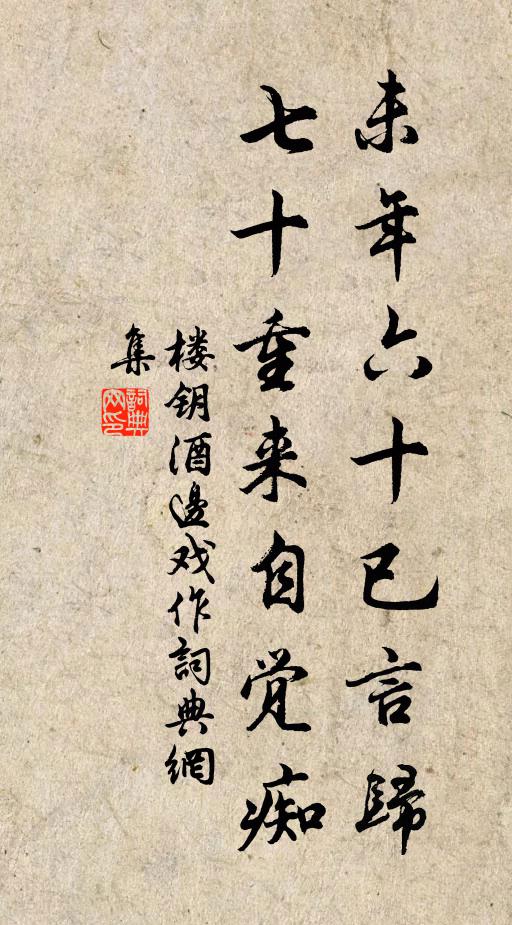 未年六十已言歸
七十重来自觉痴
楼钥酒邊戏作詞典網
集
詞典
网印